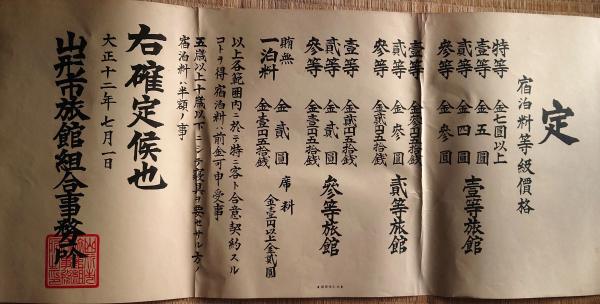 定
宿泊料等級價格
特等 金七圓以上
壹等 金五圓
貳等 金四圓
參等 金參圓
壹等旅館
壹等 金參圓五拾銭
貳等 金參圓
參等 金貳円五拾銭
貳等旅館
壹等 金貳円五拾銭
貳等 金貳圓
參等 金壹円五拾銭
參等旅館
賄無
一泊料 金貳圓 席料 金壹円以上金貳圓
以上各範囲内ニ於テ特ニ客ト合意契約スル
コトヲ得宿泊料ハ前金可申受事
五歳以上十歳以下ニシテ寝具ヲ要セサル方ノ
宿泊料ハ半額ノ事
右確定候也
大正十二年七月一日
山形市旅館組合事務所